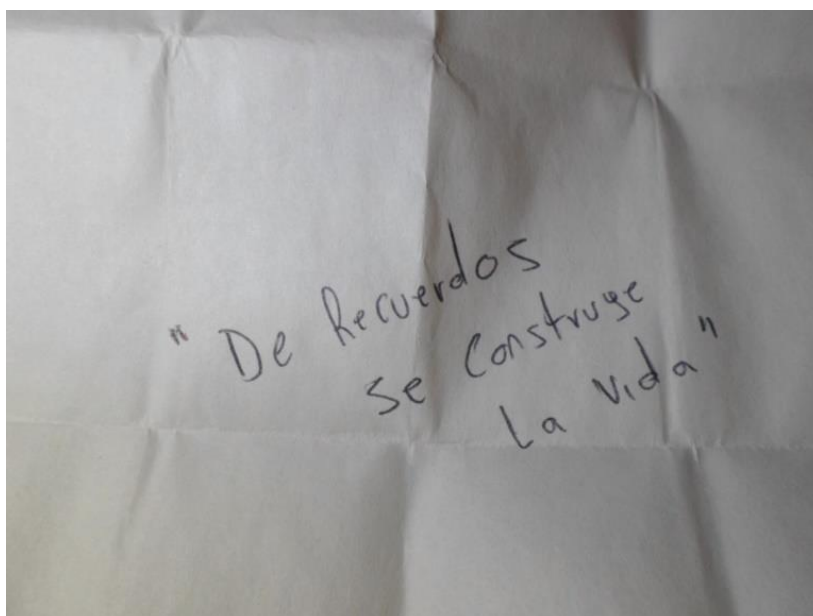 "De Recuerdos
se construye
La vida"